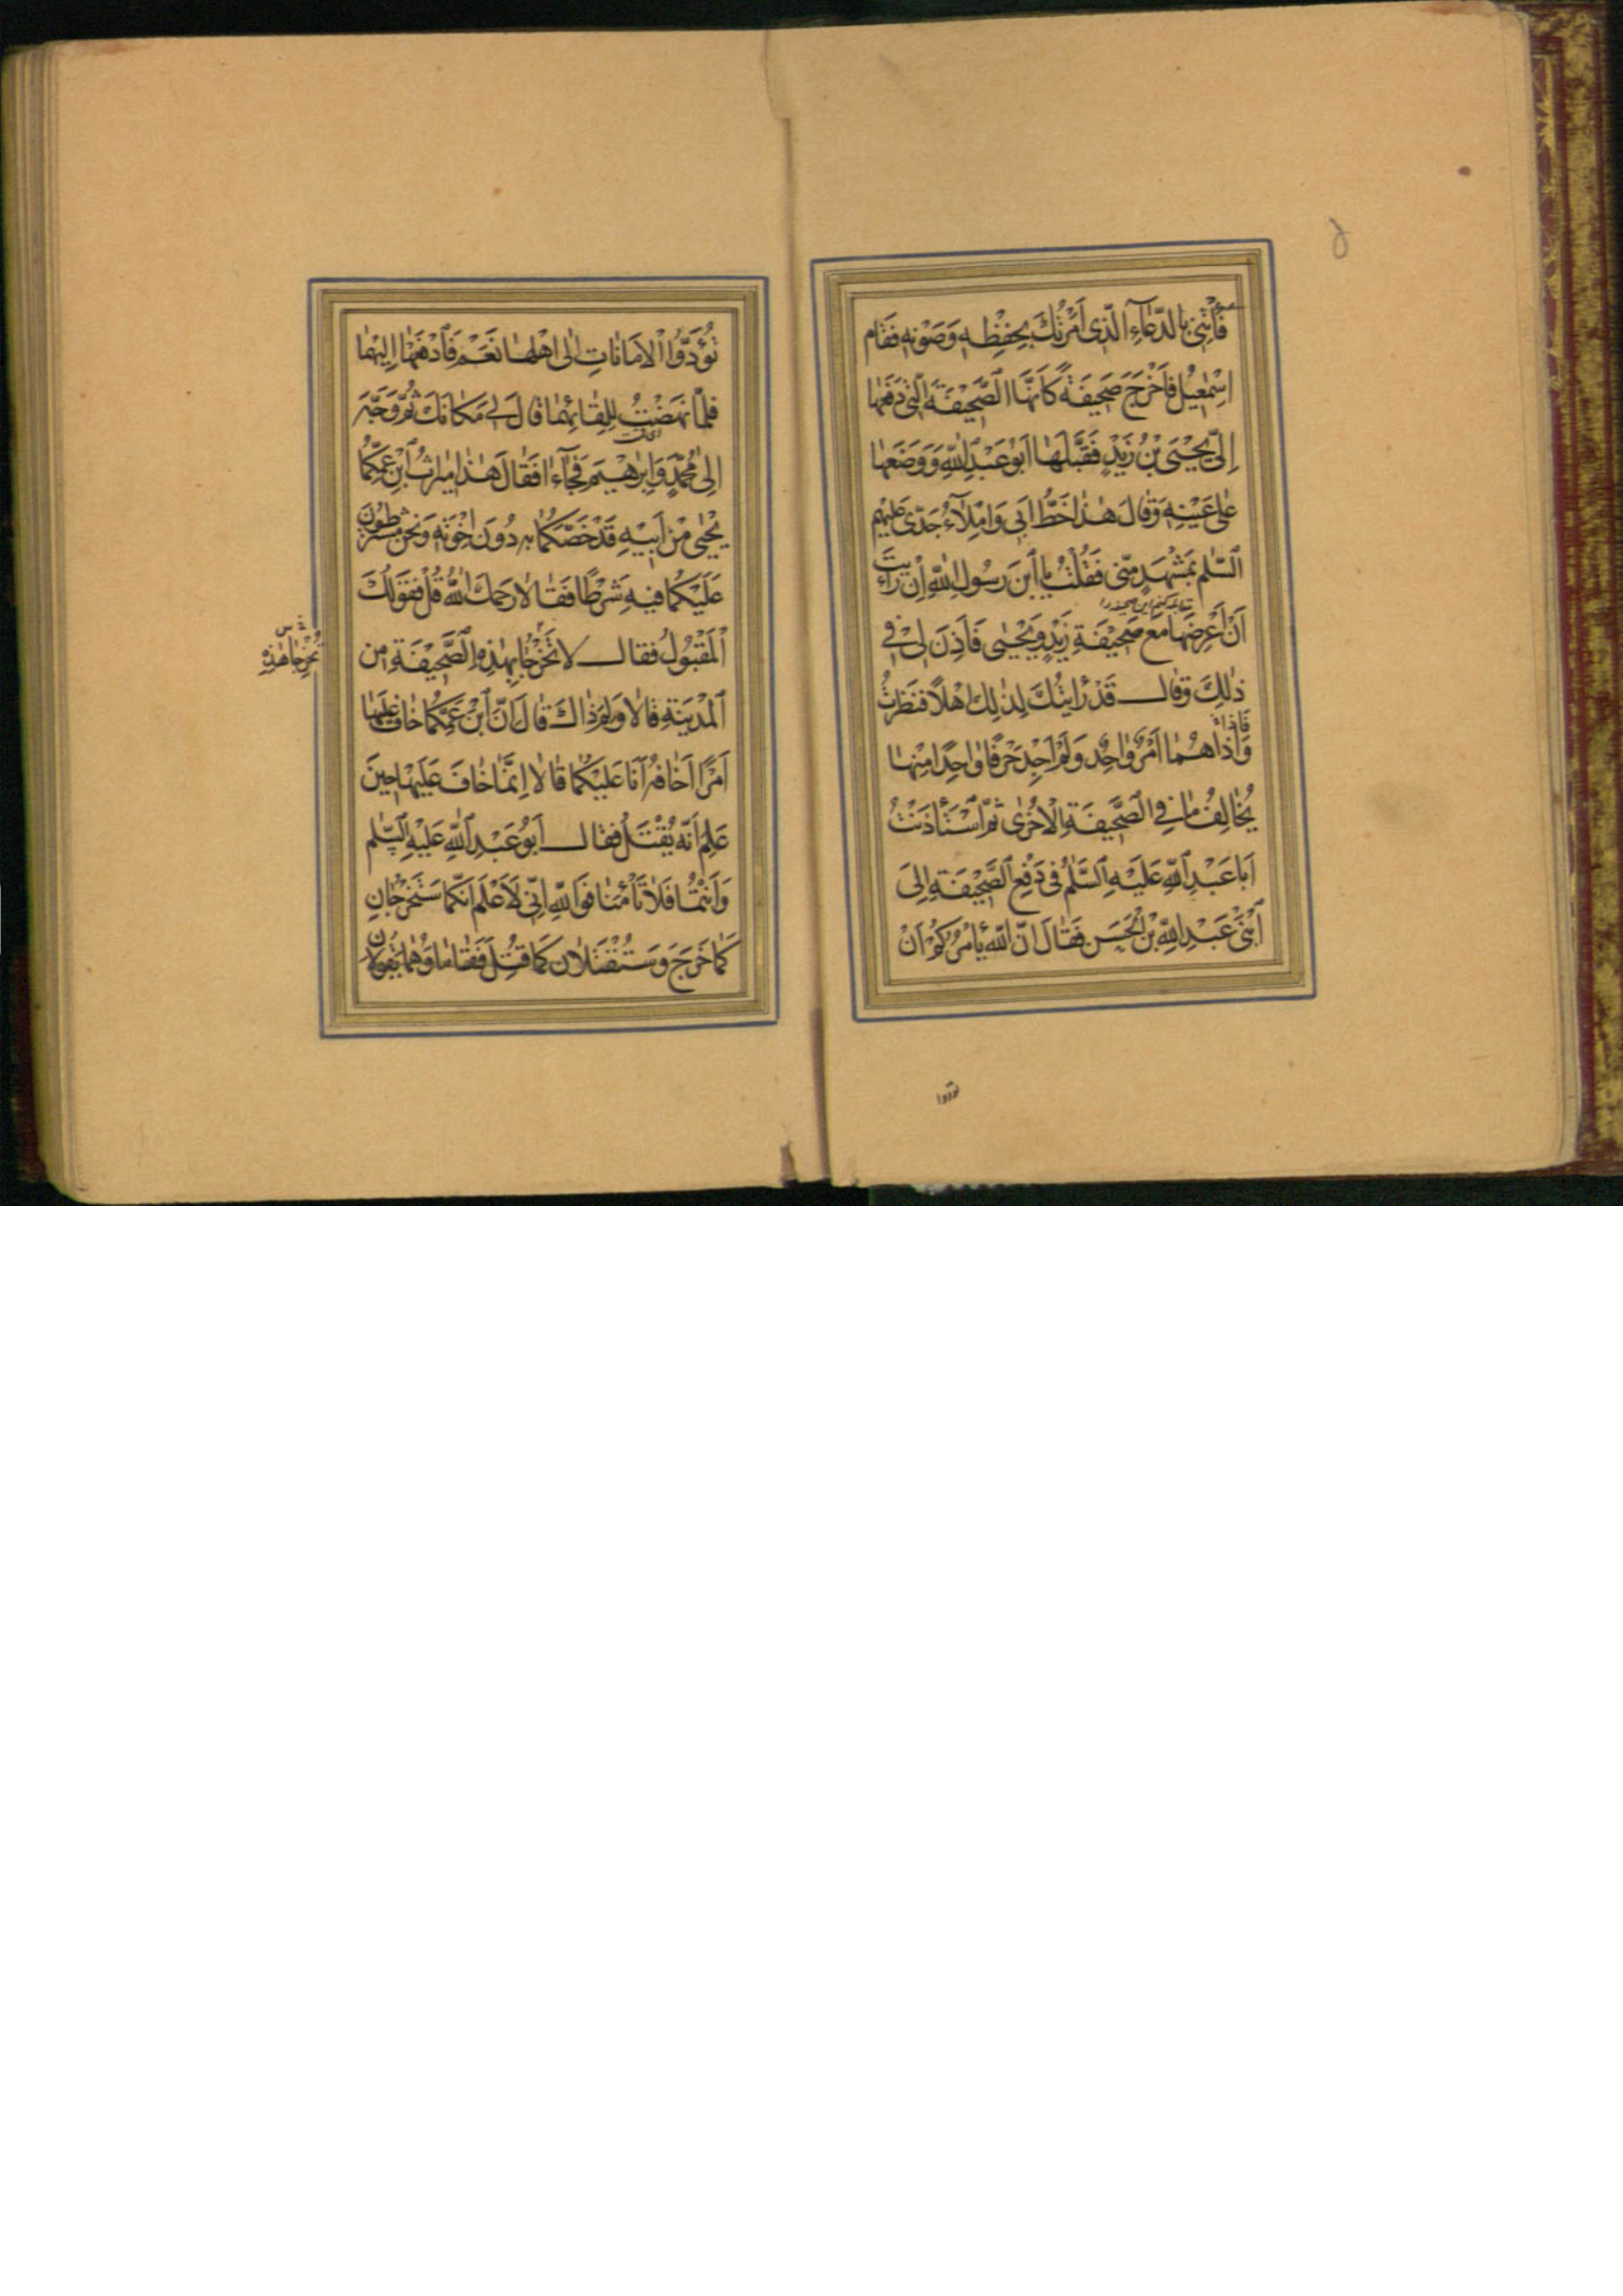 فَأْتِنِي بِالدُّعَاءِ الَّذِي أَمَرْتُكَ بِحِفْظِهِ وَصَوْنِهِ فَقَامَ
اِسْمٰعِيلُ فَأَخْرَجَ صَحِيفَةً كَأَنَّهَا الصَّحِيفَةُ الَّتِي دَفَعَهَا
إِلَيَّ يَحْيَى بْنُ زَيْدٍ فَقَبَّلَهَا أَبُو عَبْدِ اللهِ وَوَضَعَهَا
عَلَى عَيْنِهِ وَقَالَ هٰذَا خَطُّ أَبِي وَإِمْلَاءُ جَدِّي عَلَيْهِمُ
السَّلٰمُ بِمَشْهَدٍ مِنِّي فَقُلْتُ يَا ابْنَ رَسُولِ اللهِ إِنْ رَأَيْتَ
أَنْ أَعْرِضَهَا مَعَ صَحِيفَةِ زَيْدٍ وَيَحْيَى فَأَذِنَ لِي فِي
ذٰلِكَ وَقَالَ قَدْ رَأَيْتُكَ لِذٰلِكَ أَهْلًا فَنَظَرْتُ
فَإِذَا
وَإِذَا هُمَا أَمْرٌ وَاحِدٌ وَلَمْ أَجِدْ حَرْفًا وَاحِدًا مِنْهَا
يُخَالِفُ مَا فِي الصَّحِيفَةِ الْأُخْرَى ثُمَّ اسْتَأْذَنْتُ
أَبَا عَبْدِ اللهِ عَلَيْهِ السَّلٰمُ فِي دَفْعِ الصَّحِيفَةِ إِلَى
ابْنَيْ عَبْدِ اللهِ بْنِ الْحَسَنِ فَقَالَ إِنَّ اللهَ يَأْمُرُكُمْ أَنْ
تؤدوا
تُؤَدُّوا الْأَمَانَاتِ إِلَى أَهْلِهَا نَعَمْ فَادْفَعْهَا إِلَيْهِمَا
فَلَمَّا نَهَضْتُ لِلِقَائِهِمَا قَالَ لِي مَكَانَكَ ثُمَّ وَجَّهَ
إِلَى مُحَمَّدٍ وَإِبْرٰهِيمَ فَجَاءَا فَقَالَ هٰذَا مِيرَاثُ ابْنِ عَمِّكُمَا
يَحْيَى مِنْ أَبِيهِ قَدْ خَصَّكُمَا بِهِ دُونَ إِخْوَتِهِ وَنَحْنُ مُشْتَرِطُونَ
عَلَيْكُمَا فِيهِ شَرْطًا فَقَالَا رَحِمَكَ اللهُ قُلْ فَقَوْلُكَ
الْمَقْبُولُ فَقَالَ لَا تَخْرُجَا بِهٰذِهِ الصَّحِيفَةِ مِنَ
تُخْرِجَا هٰذِهِ
الْمَدِينَةِ قَالَا وَلِمَ ذَاكَ قَالَ إِنَّ ابْنَ عَمِّكُمَا خَافَ عَلَيْهَا
أَمْرًا أَخَافُهُ أَنَا عَلَيْكُمَا قَالَا إِنَّمَا خَافَ عَلَيْهَا حِينَ
عَلِمَ أَنَّهُ يُقْتَلُ فَقَالَ أَبُو عَبْدِ اللهِ عَلَيْهِ السَّلٰمُ
وَأَنْتُمَا فَلَا تَأْمَنَا فَوَاللهِ إِنِّي لَأَعْلَمُ أَنَّكُمَا سَتَخْرُجَانِ
كَمَا خَرَجَ وَسَتُقْتَلَانِ كَمَا قُتِلَ فَقَامَا وَهُمَا يَقُولَانِ